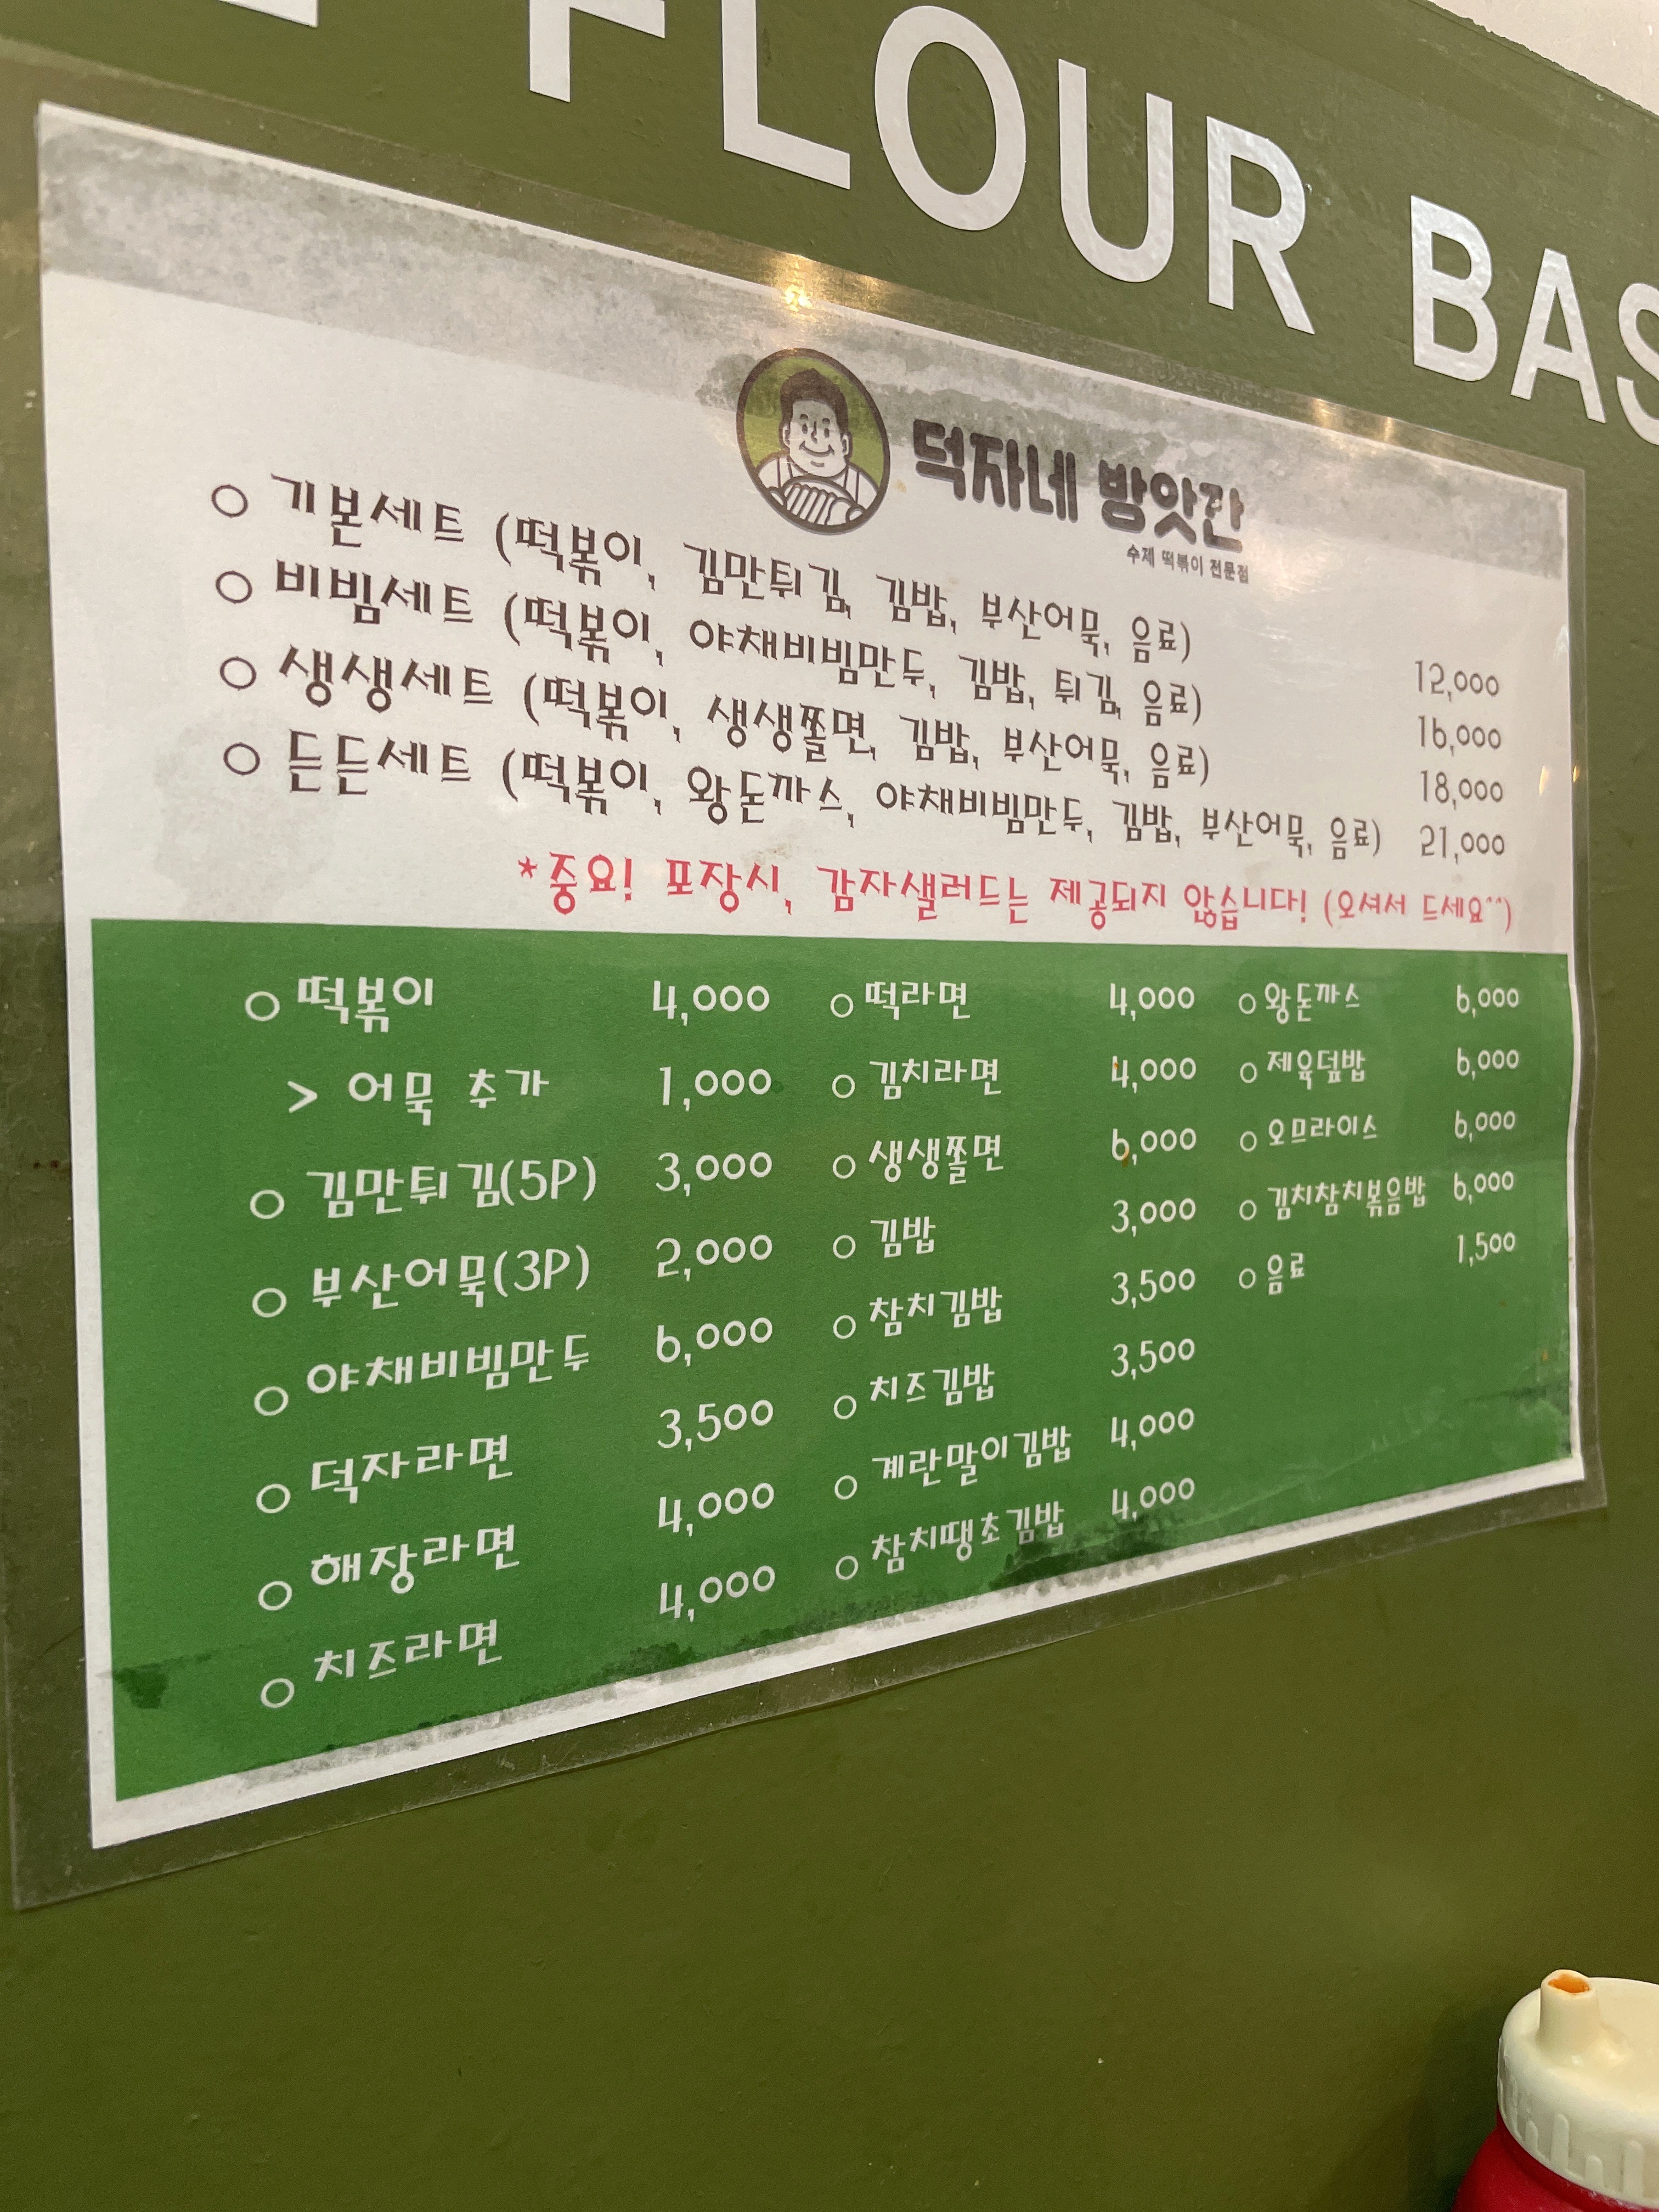 FLOUR BAS
덕자네 방앗간
수제 떡볶이 전문점
○ 기본세트 (떡볶이, 김만튀김, 김밥, 부산어묵, 음료) 12,000
○ 비빔세트 (떡볶이, 야채비빔만두, 김밥, 튀김, 음료) 16,000
○ 생생세트 (떡볶이, 생생쫄면, 김밥, 부산어묵, 음료) 18,000
○ 든든세트 (떡볶이, 왕돈까스, 야채비빔만두, 김밥, 부산어묵, 음료) 21,000
*중요! 포장시, 감자샐러드는 제공되지 않습니다! (오셔서 드세요^^)
○ 떡볶이 4,000
> 어묵 추가 1,000
○ 김만튀김(5P) 3,000
○ 부산어묵(3P) 2,000
○ 야채비빔만두 6,000
○ 덕자라면 3,500
○ 해장라면 4,000
○ 치즈라면 4,000
○ 떡라면 4,000
○ 김치라면 4,000
○ 생생쫄면 6,000
○ 김밥 3,000
○ 참치김밥 3,500
○ 치즈김밥 3,500
○ 계란말이김밥 4,000
○ 참치땡초김밥 4,000
○ 왕돈까스 6,000
○ 제육덮밥 6,000
○ 오므라이스 6,000
○ 김치참치볶음밥 6,000
○ 음료 1,500